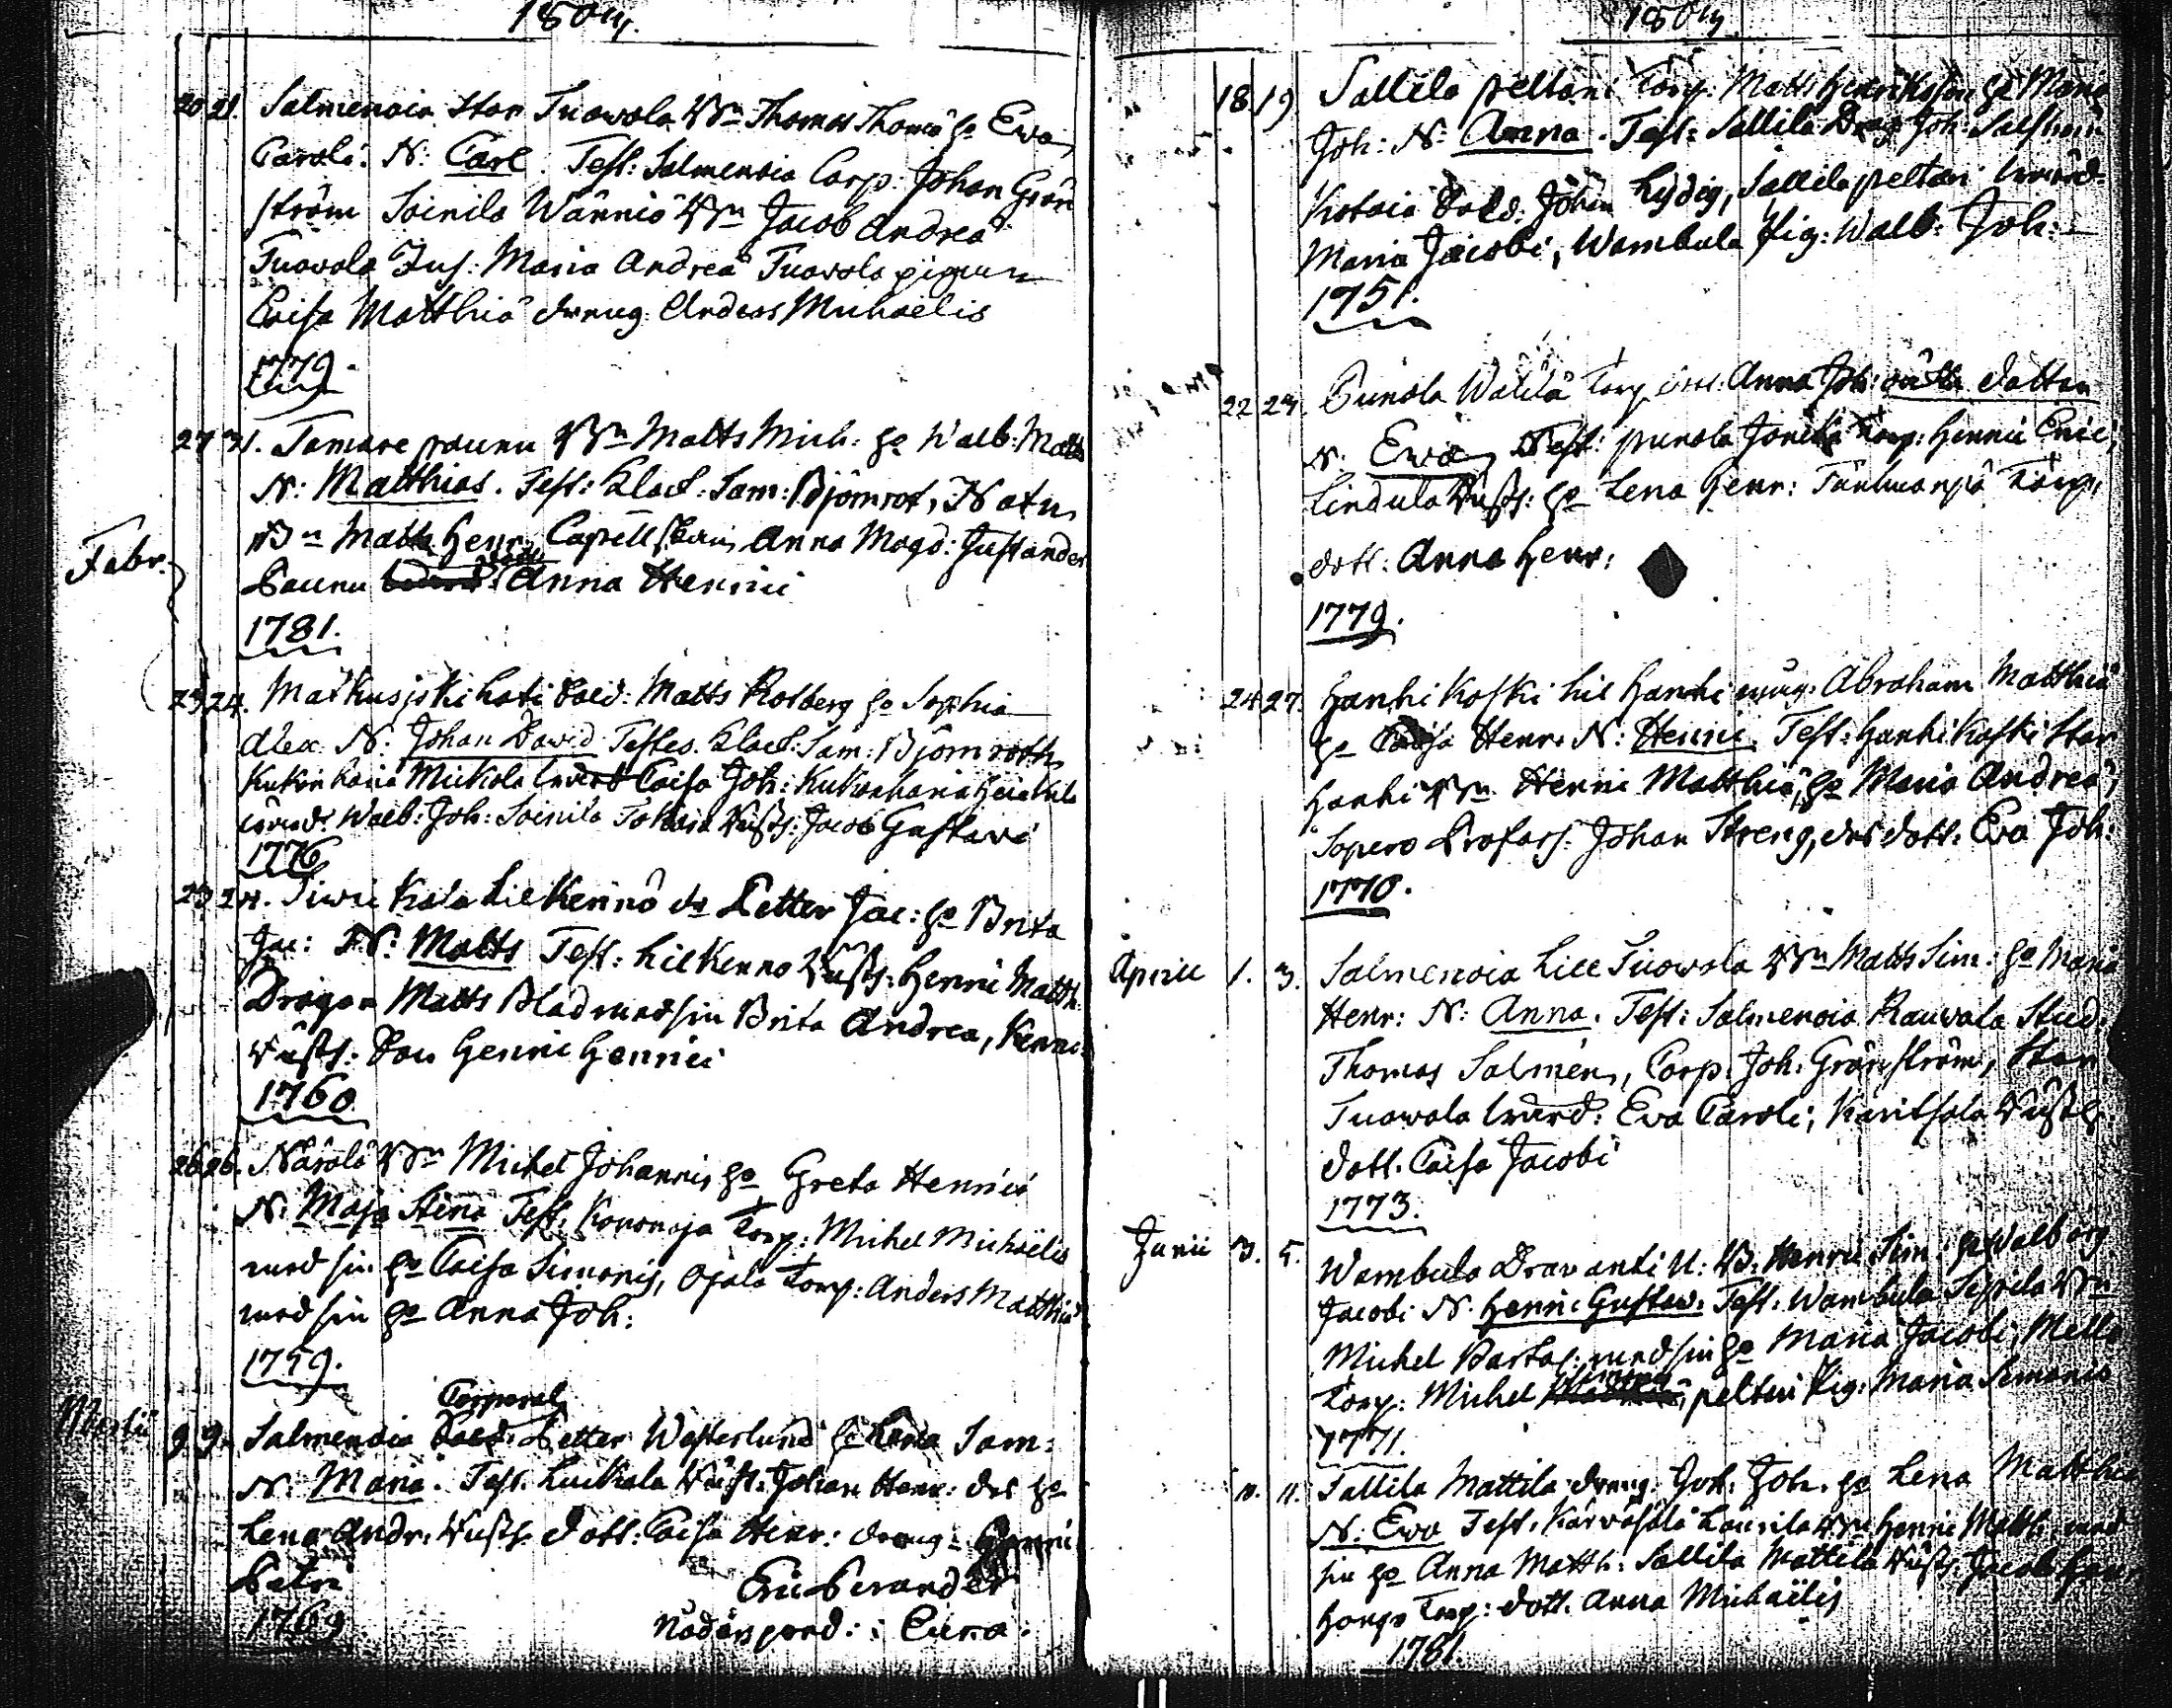 1804.
20 21. Salmenoia Stor Tuovola Bn Thomas Thomæ h:o Ewa
Caroli. N: Carl. Test: Salmenoia Corp: Johan Grön
ström Soinila Wänniö Bn Jacob Andreæ
Tuovola Inh: Maria Andreæ Tuovola pigan
Caisa Matthiæ dreng: Anders Michaelis
1779.
27 31. Tamare paunu Bn Matts Mich: h:o Walb: Matth
N: Matthias. Test: Klock: Sam: Björnrot,
Bn Matth Henr, Capellskan Anna Magd: Justander
Paunu dott: Anna Henrici
1781.
Febr.
23 24. Matkusjoki Kati Sold: Matts Rosberg h:o Sophia
Alex: N: Johan David Testes. Klock: Sam: Björnroth
Kukonharia Mickola Caisa Joh: Kukonharia Heickilä
Walb: Joh: Soinila Tokoia Bussh: Jacob Gustavi
1776
23 24. Siwi Kala Lill Kennö dr Petter Jac: h:o Brita
Jac: N: Matts Test: Lill Kenno Bussh: Henric Matth:
Dragon Matts Blad med sin Brita Andreæ, Kenno
Bussh: Son Henric Henrici
1760
26 26. Närölä Bn Michel Johannis h:o Greta Henrici
N: Maja Stina Test: Kononoja Torp: Michel Michaëlis
med sin h:o Caisa Simonis, Ojala Torp: Anders Matthiæ
med sin h:o Anna Joh:
1759.
Martii
Corporal
9 9. Salmenoia Sold: Petter Westerlund h:o Lena Sam:
N: Maria. Test. Luckala Bussh: Johan Henr: des h:o
Lena Andr: Bussh: dott: Caisa Henr: dreng: Henric
Petri
1769
Eric Perander
Nådårspred: i Eura.
1804
18. 19. Sallila peltari Torp: Matts Henriksson h:o Maria
Joh: N: Anna. Test: Sallila Drag Joh: Salström
Kotoia Sold: Johan Lydig, Sallila peltari
Maria Jacobi, Wambula Pig: Walb: Joh:
1751.
22 24. Punola Wälilä Torp dott: Anna Joh: oäckta dotter
N. Ewa, Test: punola Torp: Henric Eric:
Lindula Bussh: h:o Lena Henr:
dott: Anna Henr:
1779.
24 27. Hanhikoski lill Hanhi Abraham Matthiæ
h:o Caisa Henr: N: Henric. Test: Hanhikoski Stor
Hanhi Bn Henric Matthiæ, h:o Maria Andreæ,
Sopero Profoss: Johan Streng, des dott: Eva Joh:
1770.
Aprill 1. 3. Salmenoia Lill Tuovola Bn Matts Sim: h:o Maria
Henr: N: Anna. Test: Salmenoia Rauvala Stud:
Thomas Salmén, Corp: Joh: Grönström, Stor
Tuowola Eva Caroli, Karitsala Bussh:
dott. Caisa Jacobi
1773.
Junii 3. 5. Wambula Dravanti U: B: Henric Sim: h:o Walborg
Jacobi N. Henric Gustav: Test: Wambula Seppela Bn
Michel Bartol: med sin h:o Maria Jacobi, Mello
Torp: Michel peltari Pig: Maria Simonis
1771.
10. 11. Sallila Mattila dreng: Joh: Joh: h:o Lena Matthiæ
N: Ewa Test: Kärväsälä Laurila Bn Henric Matth: med
sin h:o Anna Matth: Sallila Mattila Bussh: Jacob Henr
Honga Torp: dott. Anna Michaëlis
1781.